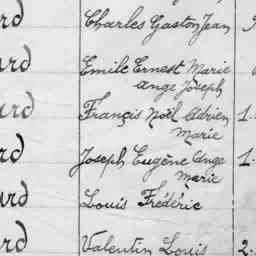 rd Charles Gaston Jean
ard Emile Ernest Marie
ange Joseph
urd François Noël Adrien 1.
Marie
rd Joseph Eugène Ange 1.
Marie
ard Louis Frédéric
ard Valentin Louis 2.